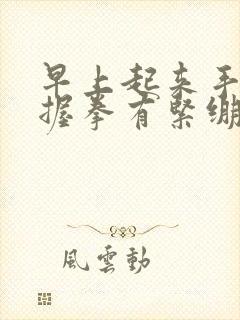 早上起来手
握拳有緊绷
風雲動